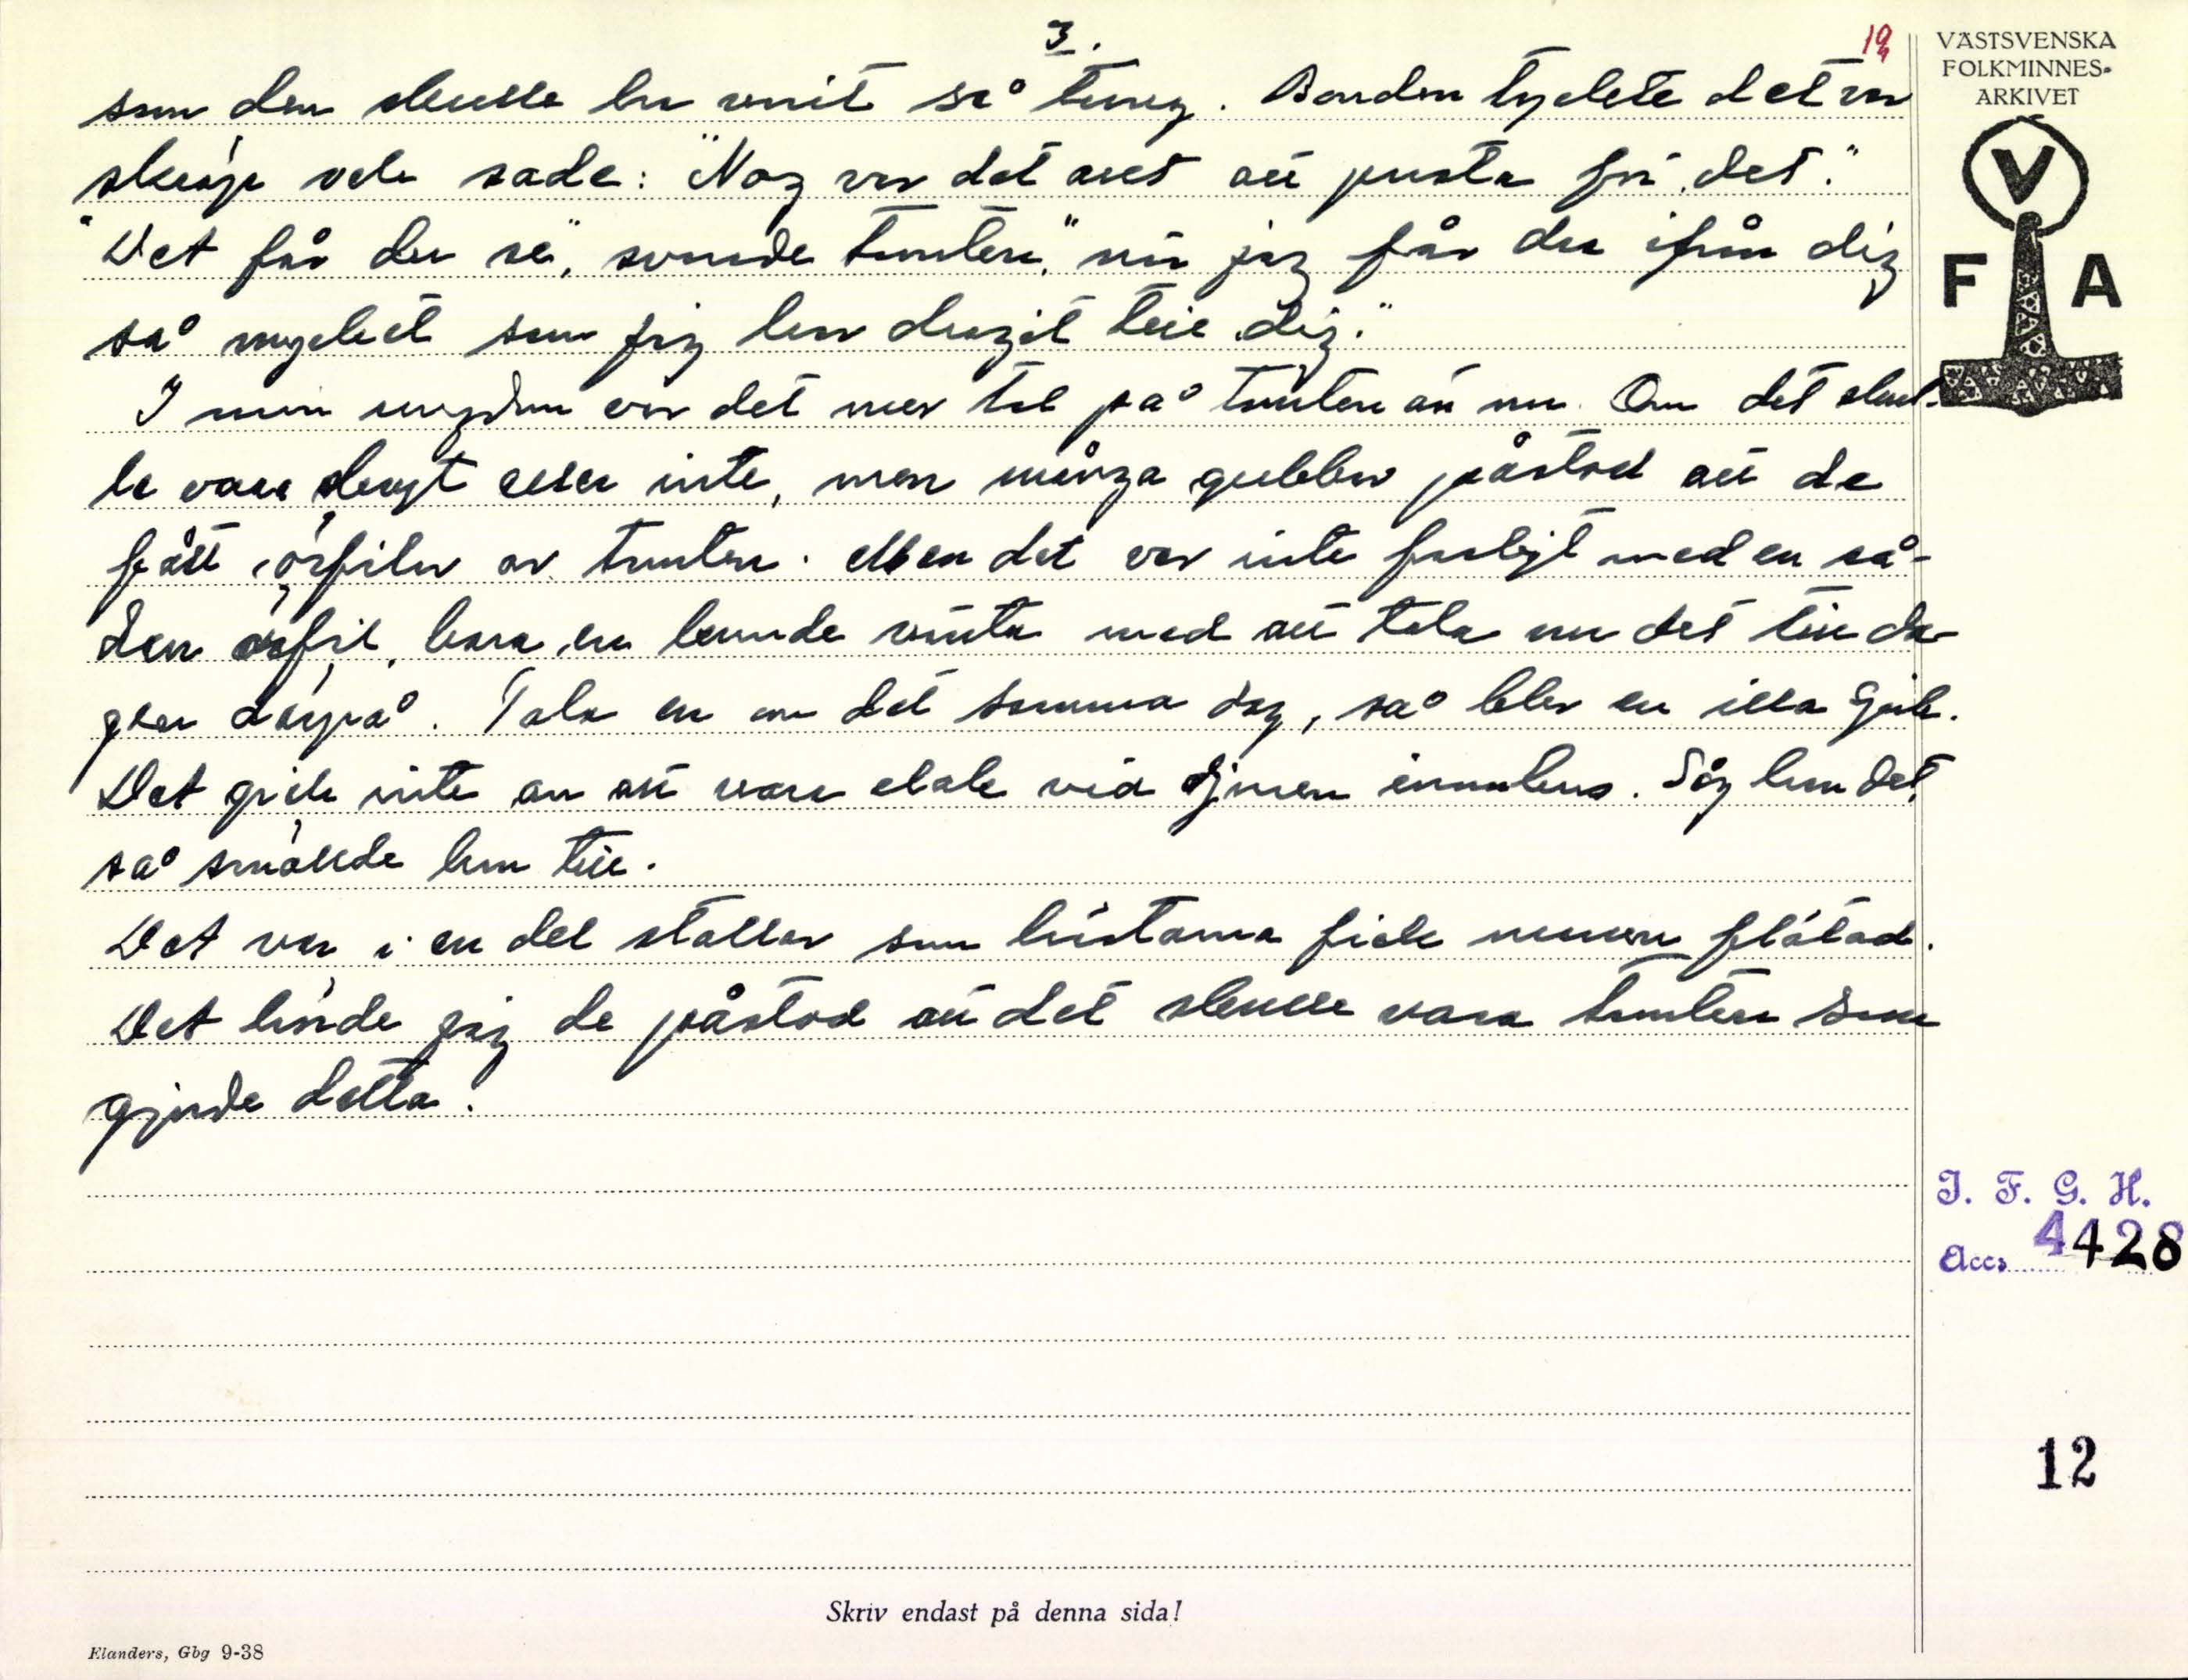 3.
19
VÄSTSVENSKA
FOLKMINNES-
ARKIVET
V
F A
som den skulle ha varit så tung. Bonden tyckte det var
skräp och sade: "Nog var det anet att pusta för det."
"Det får du se", svarade tomten, "när jag får dra ifrån dig
så mycket som jag har dragit till dig."
I min ungdom var det mer tal på tomten än nu. Om det skul-
le vara skrigt eller inte, men många gubbar påstod att de
fått örfilar av tomten. Men det var inte farligt med en så-
dan örfil, bara en kunde vänta med att tala om det till da-
gen därpå. Tala en om det samma dag, så blev en illa sjuk.
Det gick inte an att vara elak vid djuren inomhus. Såg han det,
så smällde han till.
Det var i en del stallar som hästarna fick manen flätad.
Det hörde jag de påstod att det skulle vara tomten som
gjorde detta.
I. F. G. H.
Acc. 4428
12
Skriv endast på denna sida!
Elanders, Gbg 9-38